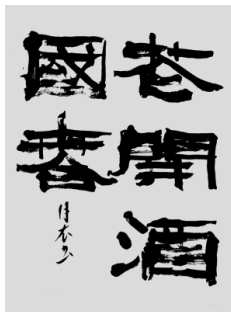 花開酒
國春